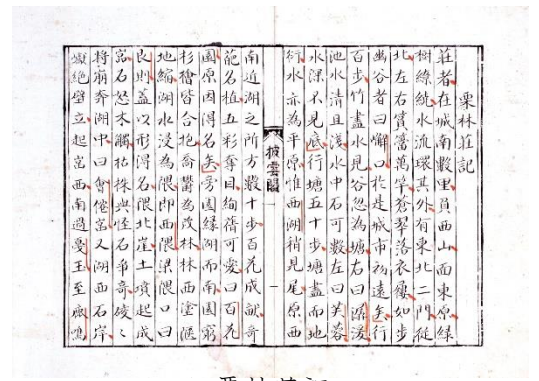 栗林莊記
莊者在城南數里負西山而東原緑
樹繞綂水流環其外有東北二門從
北左右篔簹萬竿蒼翠落衣履如步
幽谷者曰懈口於是城市初遠矣行
百步竹盡水見谷忽為塘右曰潺湲
池水清且淺水中石可數左曰芙蓉
水深不見底行塘五十步塘盡而地
衍水亦為平原惟西湖稍見尾原西
披雲閣
一
南近湖之所方數十步百花成献奇
葩名植五彩奪目絢䔢可愛曰百花
園原因得名矣旁園緣湖而南園窮
杉檜皆合抱喬鬱為茂林林西塗匯
地縮湖水浸為隈即西隈梁隈口曰
良則蓋以形得名隈北崖土墳起成
宕石怒木觸枯株與怪石爭奇磴
將崩奔湖中曰會僊宕入湖西石岸
巘絕壁立起宕西南過戞玉至